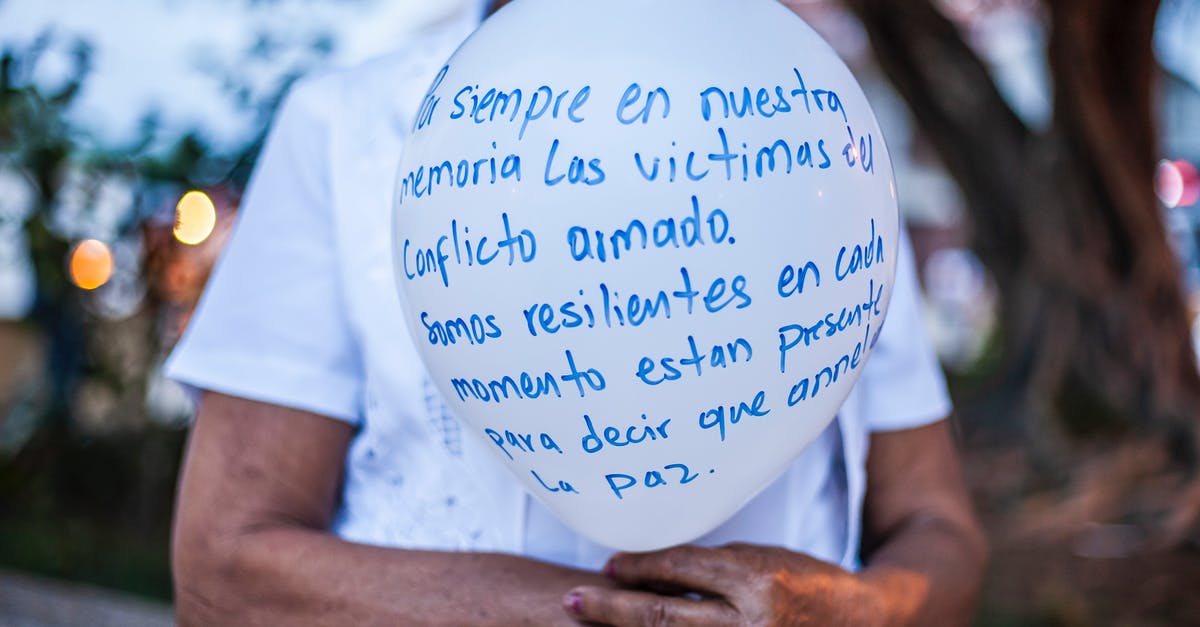 Por siempre en nuestra
memoria Las victimas del
conflicto armado.
somos resilientes en cada
momento estan presente
para decir que annela
La paz.